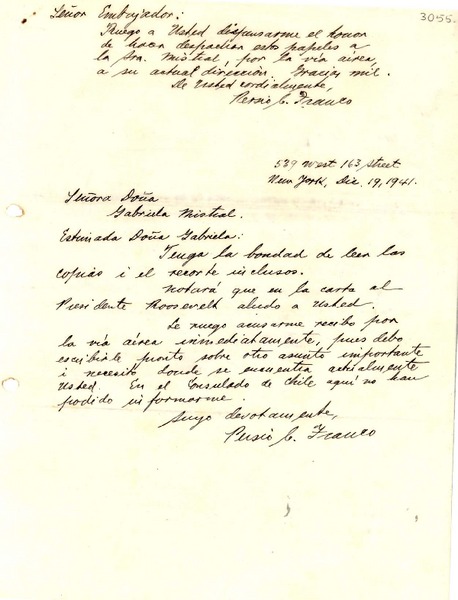 3055
Señor Embajador:
Ruego a Usted dispensarme el honor
de hacer despachar estos papeles a
la Sra. Mistral, por la vía aérea,
a su actual dirección. Gracias mil.
De Usted cordialmente,
Persio C. Franco
539 West 163 Street
New York, Dic. 19, 1941.
Señora Doña
Gabriela Mistral.
Estimada Doña Gabriela:
Tenga la bondad de leer las
copias i el recorte inclusos.
Notará que en la carta al
Presidente Roosevelt aludo a Usted.
Le ruego acusarme recibo por
la vía aérea inmediatamente, pues debo
escribirle pronto sobre otro asunto importante
i necesito donde se encuentra actualmente
Usted. En el Consulado de Chile aquí no han
podido informarme.
Suyo devotamente,
Persio C. Franco